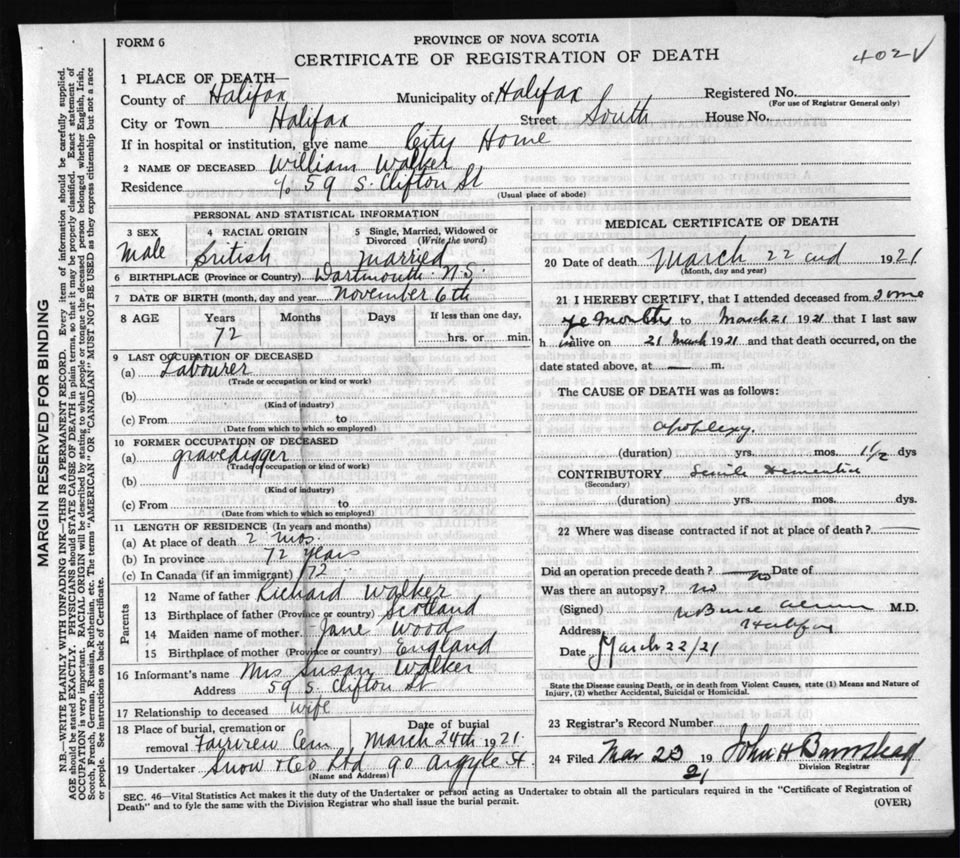 FORM 6
PROVINCE OF NOVA SCOTIA
CERTIFICATE OF REGISTRATION OF DEATH
402
1 PLACE OF DEATH—
County of Halifax Municipality of Halifax Registered No.
(For use of Registrar General only)
City or Town Halifax Street South House No.
If in hospital or institution, give name City Home
2 NAME OF DECEASED William Walker
Residence % 59 S. Clifton St
(Usual place of abode)
PERSONAL AND STATISTICAL INFORMATION
3 SEX 4 RACIAL ORIGIN 5 Single, Married, Widowed or Divorced (Write the word)
Male British married
6 BIRTHPLACE (Province or Country) Dartmouth N.S.
7 DATE OF BIRTH (month, day and year) November 6th
8 AGE Years Months Days If less than one day,
72 hrs. or min.
9 LAST OCCUPATION OF DECEASED
(a) Labourer
(Trade or occupation or kind or work)
(b)
(Kind of industry)
(c) From to
(Date from which to which so employed)
10 FORMER OCCUPATION OF DECEASED
(a) gravedigger
(Trade or occupation or kind of work)
(b)
(Kind of industry)
(c) From to
(Date from which to which so employed)
11 LENGTH OF RESIDENCE (In years and months)
(a) At place of death 2 mos.
(b) In province 72 years
(c) In Canada (if an immigrant) 72
Parents
12 Name of father Richard Walker
13 Birthplace of father (Province or country) Scotland
14 Maiden name of mother Jane Wood
15 Birthplace of mother (Province or country) England
16 Informant's name Mrs Susan Walker
Address 59 S. Clifton St
17 Relationship to deceased wife
18 Place of burial, cremation or removal Fairview Cem Date of burial March 24th 1921
19 Undertaker Snow & Co Ltd 90 Argyle St
(Name and Address)
MEDICAL CERTIFICATE OF DEATH
20 Date of death March 22nd 1921
(Month, day and year)
21 I HEREBY CERTIFY, that I attended deceased from some
months to March 21 1921 that I last saw
h im alive on 21 March 1921 and that death occurred, on the
date stated above, at — m.
The CAUSE OF DEATH was as follows:
apoplexy.
(duration) yrs. mos. 1½ dys
CONTRIBUTORY Senile Dementia
(Secondary)
(duration) yrs. mos. dys.
22 Where was disease contracted if not at place of death?
Did an operation precede death? no Date of
Was there an autopsy? no
(Signed) M.D.
Address Halifax
Date March 22/21
State the Disease causing Death, or in Death from Violent Causes, state (1) Means and Nature of Injury, (2) whether Accidental, Suicidal or Homicidal.
23 Registrar's Record Number
24 Filed Mar 23 1921 John H Barnstead
Division Registrar
SEC. 46—Vital Statistics Act makes it the duty of the Undertaker or person acting as Undertaker to obtain all the particulars required in the "Certificate of Registration of
Death" and to fyle the same with the Division Registrar who shall issue the burial permit.
(OVER)
MARGIN RESERVED FOR BINDING
N.B.—WRITE PLAINLY WITH UNFADING INK—THIS IS A PERMANENT RECORD. Every item of information should be carefully supplied.
AGE should be stated EXACTLY. PHYSICIANS should STATE CAUSE OF DEATH in plain terms, so that it may be properly classified. Exact statement of
OCCUPATION is very important. RACIAL ORIGIN will be described by stating to what people or tongue the deceased person belonged whether English, Irish,
Scotch, French, German, Russian, Ruthenian, etc. The terms "AMERICAN" OR "CANADIAN" MUST NOT BE USED as they express citizenship but not a race
or people. See instructions on back of Certificate.